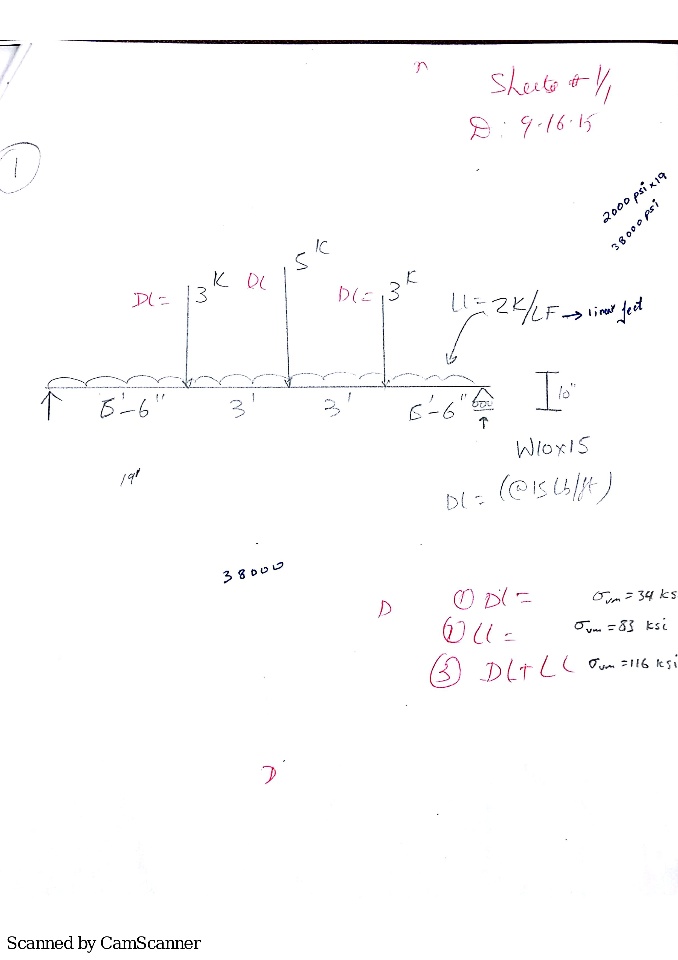 Sheets # 1/1
D: 9-16-15
1
2000 psi x 19
38000 psi
DL= 3K DL 5K DL= 3K LL= 2K/LF → linear feet
5'-6" 3' 3' 5'-6" 10"
W10x15
19'
DL= (@15 Lb/ft)
38000
D ① DL= σvm = 34 ks
② LL= σvm = 83 ksi
③ DL+LL σvm = 116 ksi
D
Scanned by CamScanner